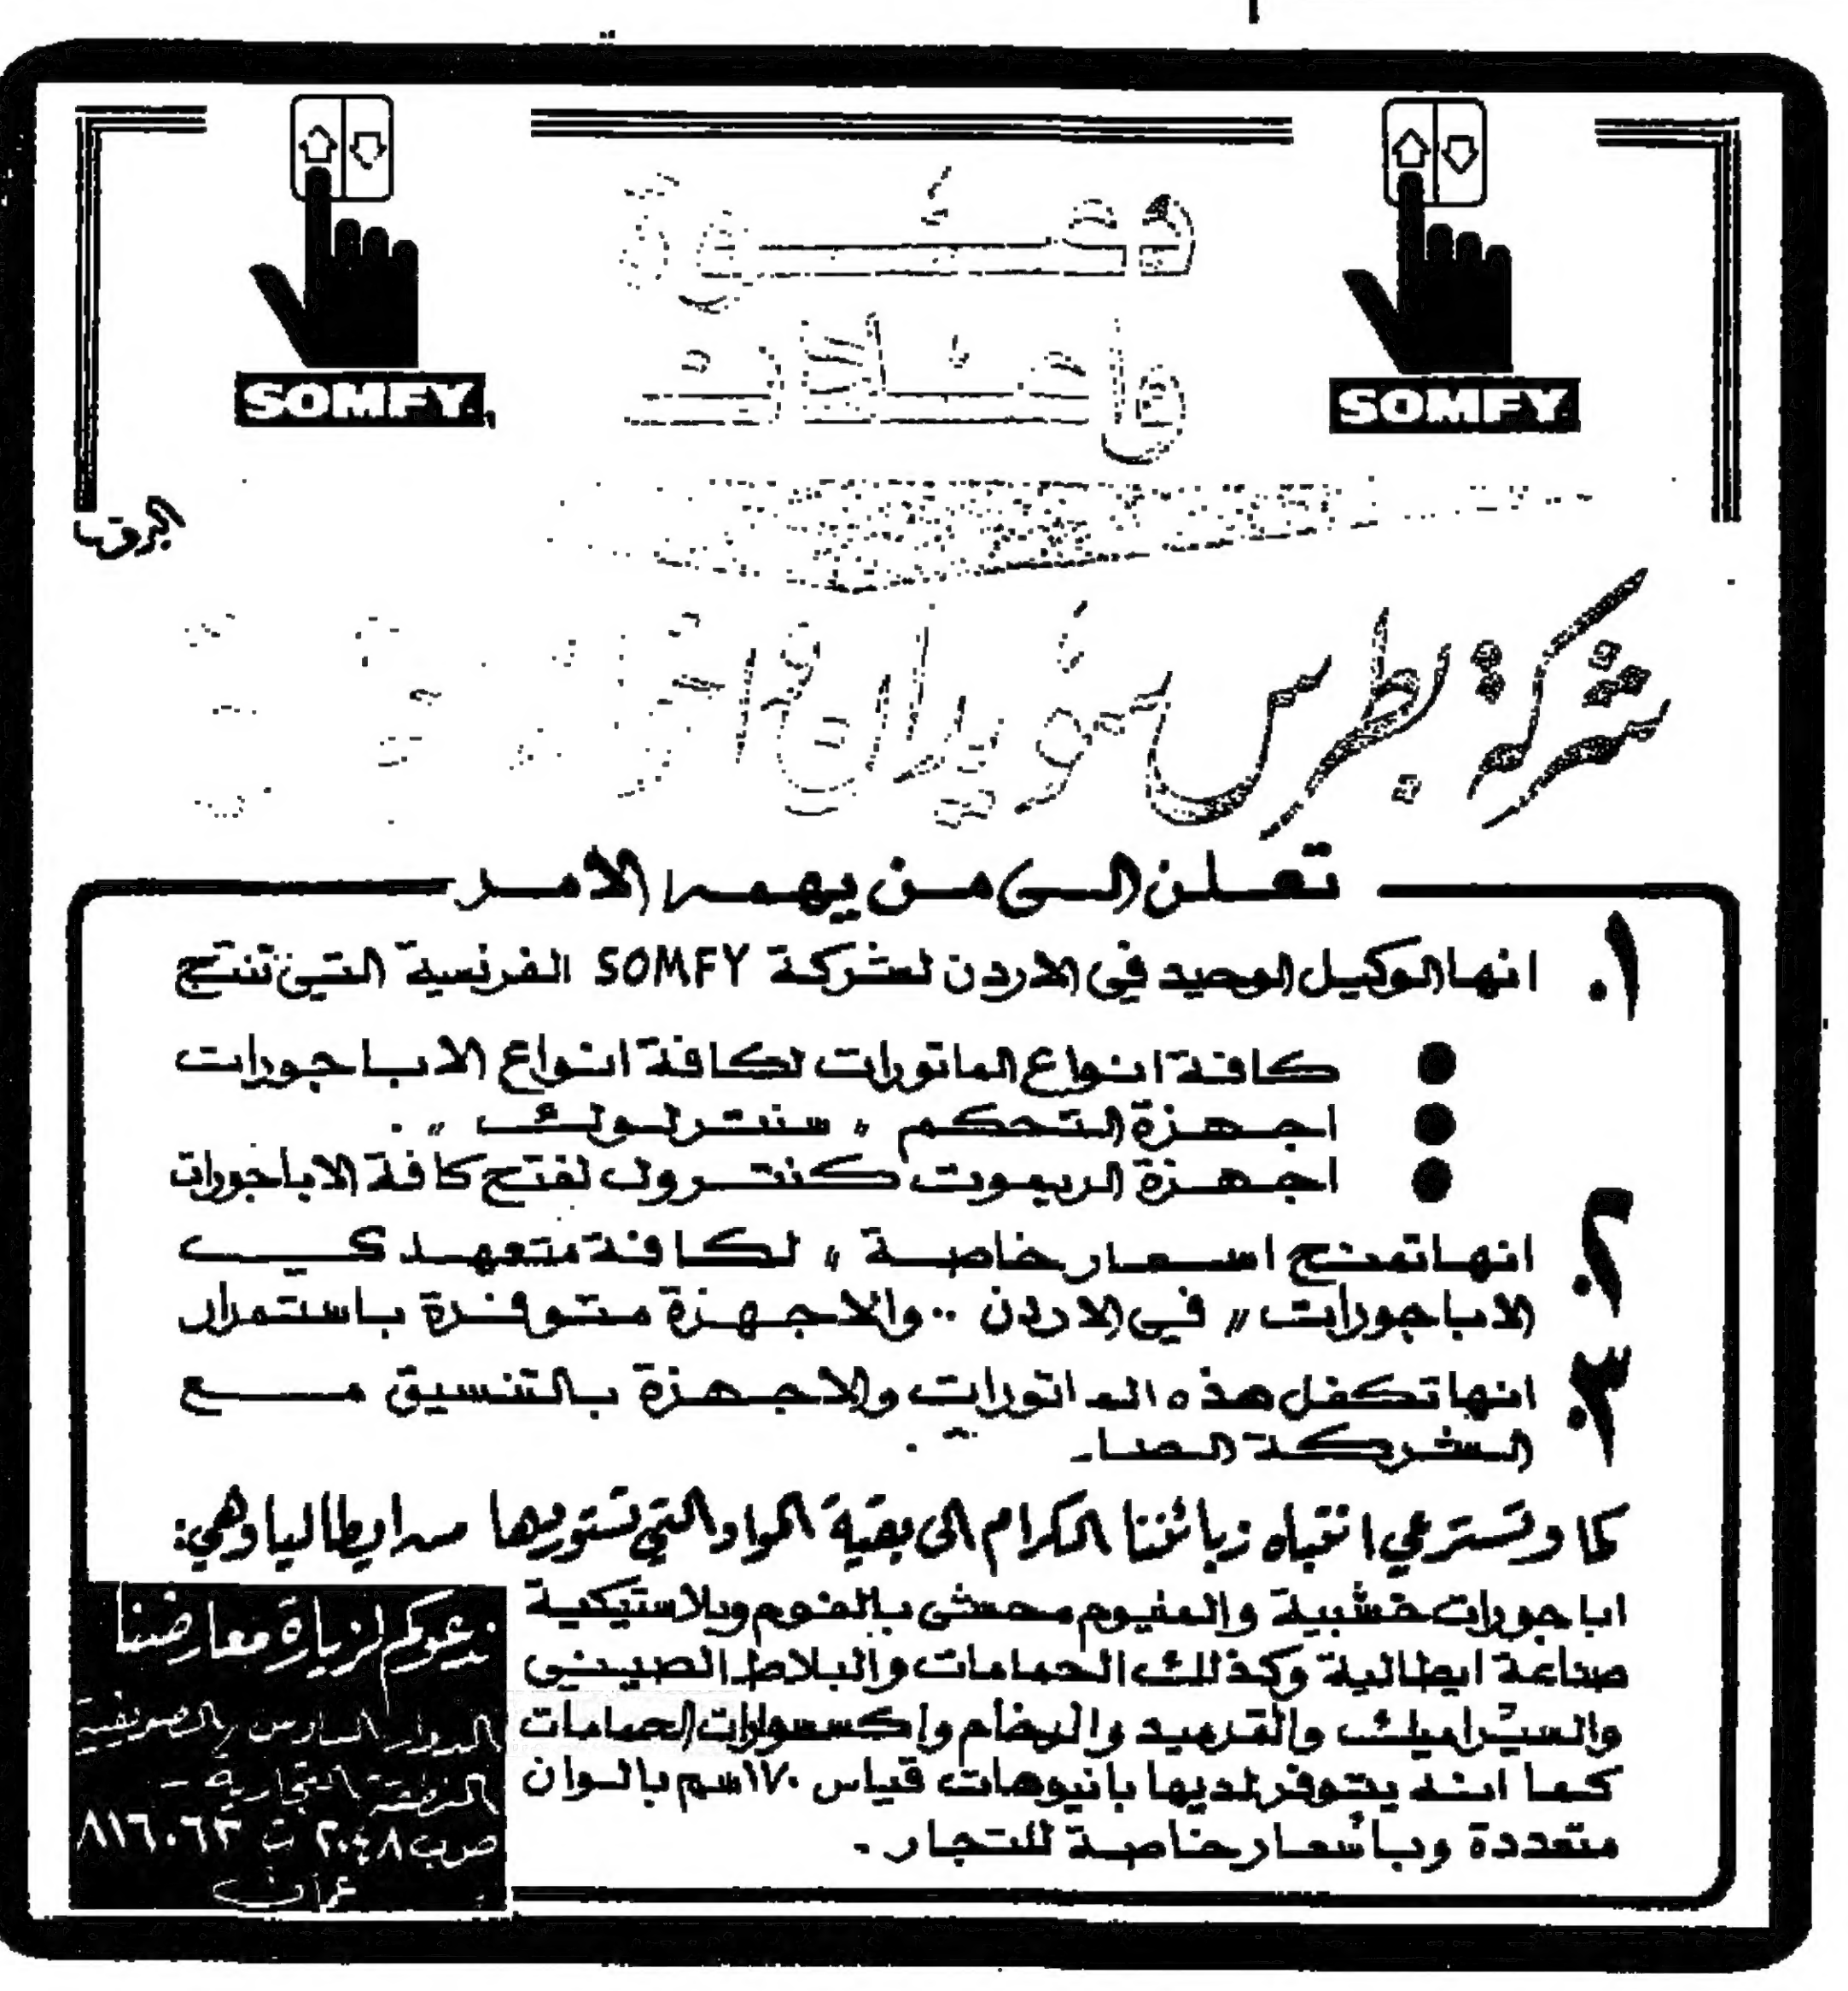 SOMFY
SOMFY
شركة بطرس سويدان
تعلن الى من يهمه الأمر
١. انها الوكيل الوحيد في الاردن لشركة SOMFY الفرنسية التي تنتج
● كافة انواع الماتورات لكافة انواع الاباجورات
● اجهزة التحكم " سنترلوك " .
● اجهزة الريموت كنترول لفتح كافة الاباجورات
٢. انها تمنح اسعار خاصة " لكافة متعهدي
الاباجورات " في الاردن .. والاجهزة متوفرة باستمرار
٣. انها تكفل هذه الماتورات والاجهزة بالتنسيق مع
الشركة
كما وتسترعي انتباه زبائننا الكرام الى بقية المواد التي تستوردها من ايطاليا وهي:
اباجورات خشبية والمنيوم محشى بالفوم وبلاستيكية
صناعة ايطالية وكذلك الحمامات والبلاط الصيني
والسيراميك والقرميد والرخام واكسسوارات الحمامات
كما انه يتوفر لديها بانيوهات قياس ١٧٠سم بالوان
متعددة وبأسعار خاصة للتجار .
ندعوكم لزيارة معارضنا
الدوار السادس / الصويفية
المنطقة التجارية -
ص.ب ٢٠٤٨ ت ٨١٦٠٦٣
عمان